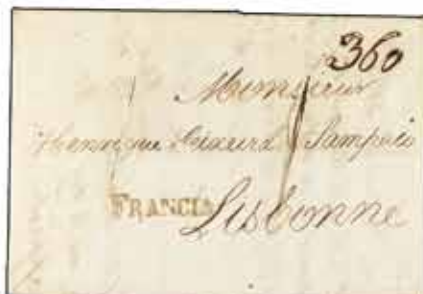 360
Monsieur
Henrique Teixeira Sampaio
FRANCIA Lisbonne